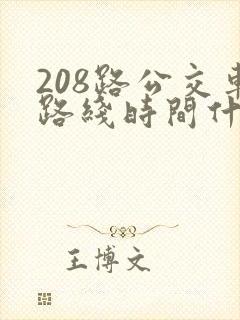 208路公交車
路綫時間什
王博文